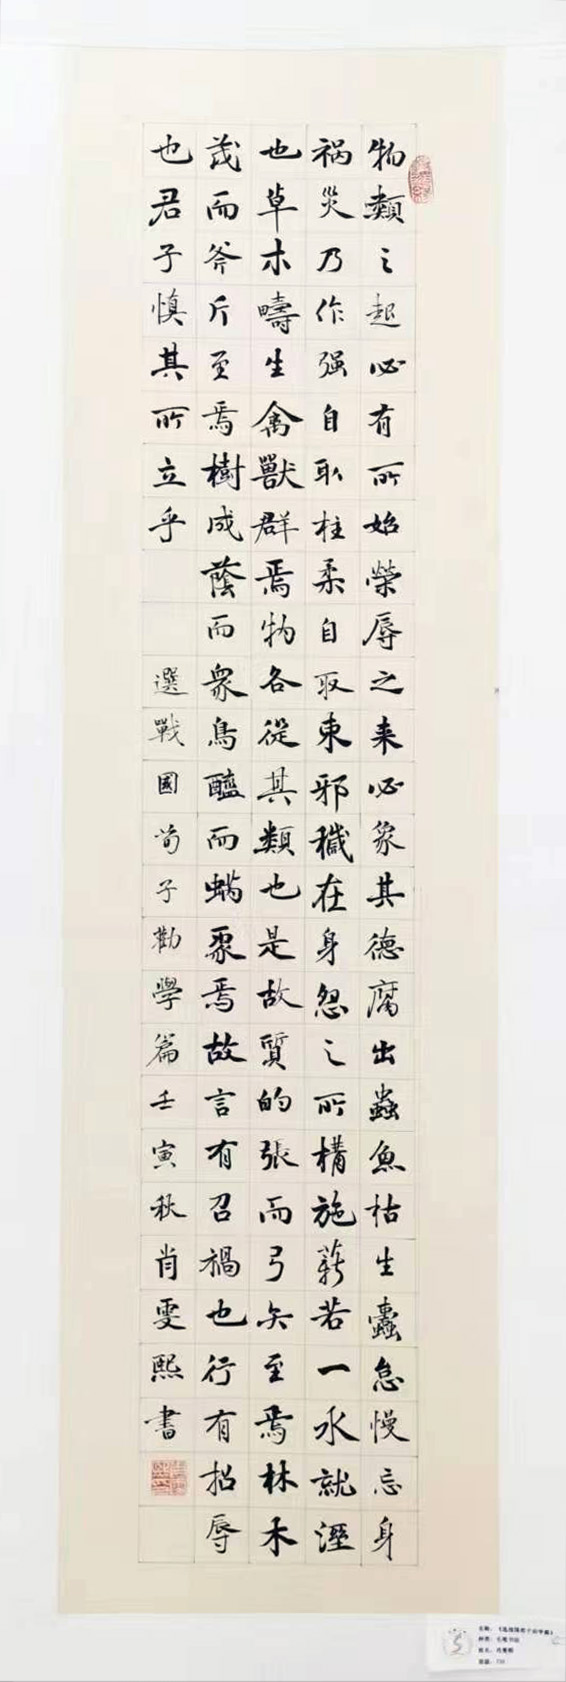 物類之起必有所始榮辱之来必象其德腐出蟲魚枯生蠹怠慢忘身
祸災乃作强自取柱柔自取束邪穢在身怨之所構施薪若一水就溼
也草木疇生禽獸群焉物各從其類也是故質的張而弓矢至焉林木
茂而斧斤至焉樹成蔭而衆鳥醯而蜹聚焉故言有召禍也行有招辱
也君子慎其所立乎 選戰國荀子勸學篇壬寅秋肖雯熙書